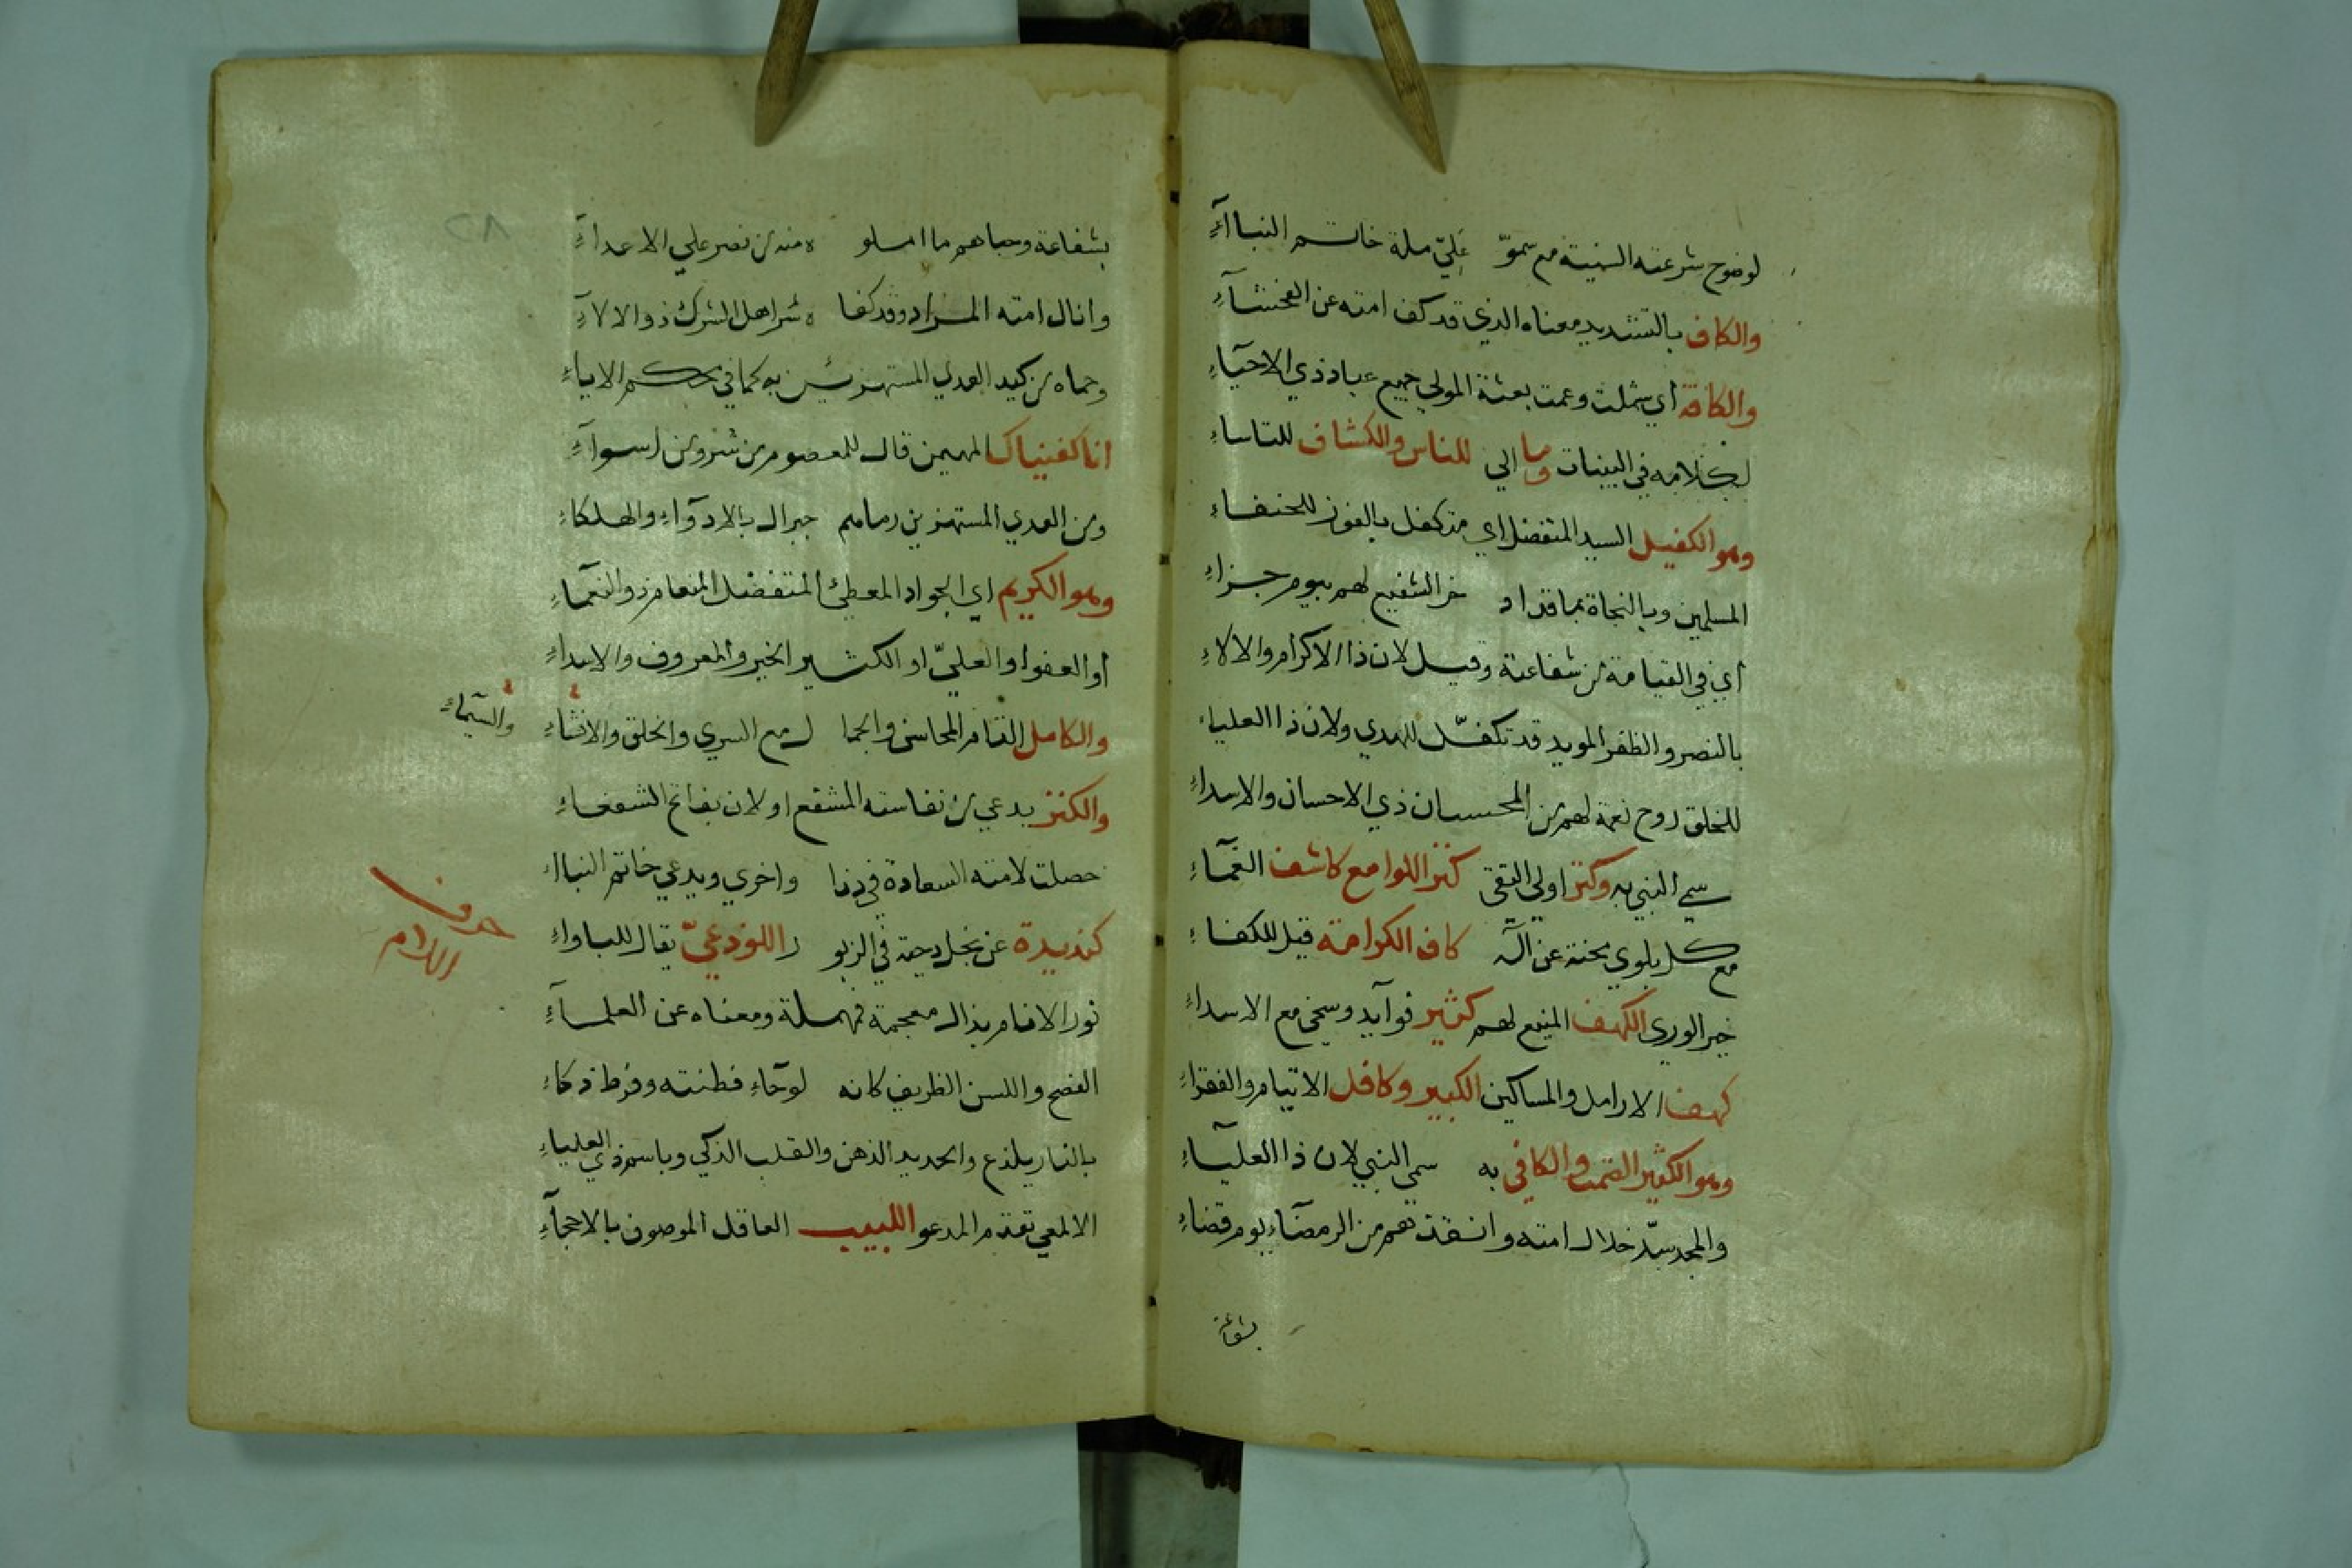 لوضوح شرعته السنية مع سموّ عَلِيّ ملة خاتم النبآءِ
والكاف بالتشديد معناه الذي قد كف امته عن الفحشآءِ
والكافة اي شملت وعمت بعثة المولي جميع عباد ذي الاحيآءِ
لكلامه في البينات وما الي للناس والكشاف للتاساءِ
وهو الكفيل السيد المتفضل اي متكفل بالفوز للحنفاءِ
المسلمين وبالنجاة بما قد اد خر الشفيع لهم بيوم جزاءِ
اي في القيامة من شفاعته وقيل لان ذا الاكرام والالاءِ
بالنصر والظفر المويد قد تكفّل للهدي ولان ذا العلياء
للخلق روح نعمة لهم من المحسان ذي الاحسان والاسداءِ
سمي النبي به وكنز اولي التقى كنز اللوامع كاشف الغمآءِ
مع كل بلوي محنة عن آله كاف الكرامة قيل للكفاءِ
خير الوري الكهف المنيع لهم كثير فوآيد وسخي مع الاسداءِ
كهف الارامل والمساكين الكبير وكافل الايتام والفقراءِ
وهو الكثير الصمت والكافي به سمي النبي لان ذا العليآءِ
والمجد سدّ خلال امته وانقذتهم من الرمضآءِ يوم قضاءِ
بشفاعة
٢٨
بشفاعة وحباهم ما املو ه منه من نصر علي الاعدآءِ
وانال امته المراد وقد كفا ه شر اهل الشرك ذو الالآءِ
وحماه من كيد العدي المستهزئين به كما في محكم الايباءِ
انا كفيناك المهيمن قال للمعصوم من شر ومن اسوآءِ
ومن العدي المستهزين رماهم جبرال بالادوآءِ والهلكاءِ
وهو الكريم اي الجواد المعطئ المتفضل المنعام ذو النعمآءِ
او العفو او العليّ او الكثير الخير والمعروف والاسداءِ
والكامل التام المحاسن والجما ل مع السري والخلق والانشآءِ
والسيمآءِ
والكنز يدعي من نفاسته المشفع او لان بفاتح الشفعاءِ
حصلت لامته السعادة في دنا واخري ويدعي خاتم النباا
حرف اللام
كنديدة عن نجل دحية في الزبو ر اللوذعيّ يقال للباواءِ
نور الانام بذال معجمة فمهملة ومعناه عن العلمآءِ
الفصح واللسن الظريف كانه لوحآءِ فطنته وفرط ذكاءِ
بالنار يلذع والحديد الذهن والقلب الذكي وباسم ذي العلياءِ
الالمعي تقدم المدعو اللبيب العاقل الموصوف بالاحجآءِ